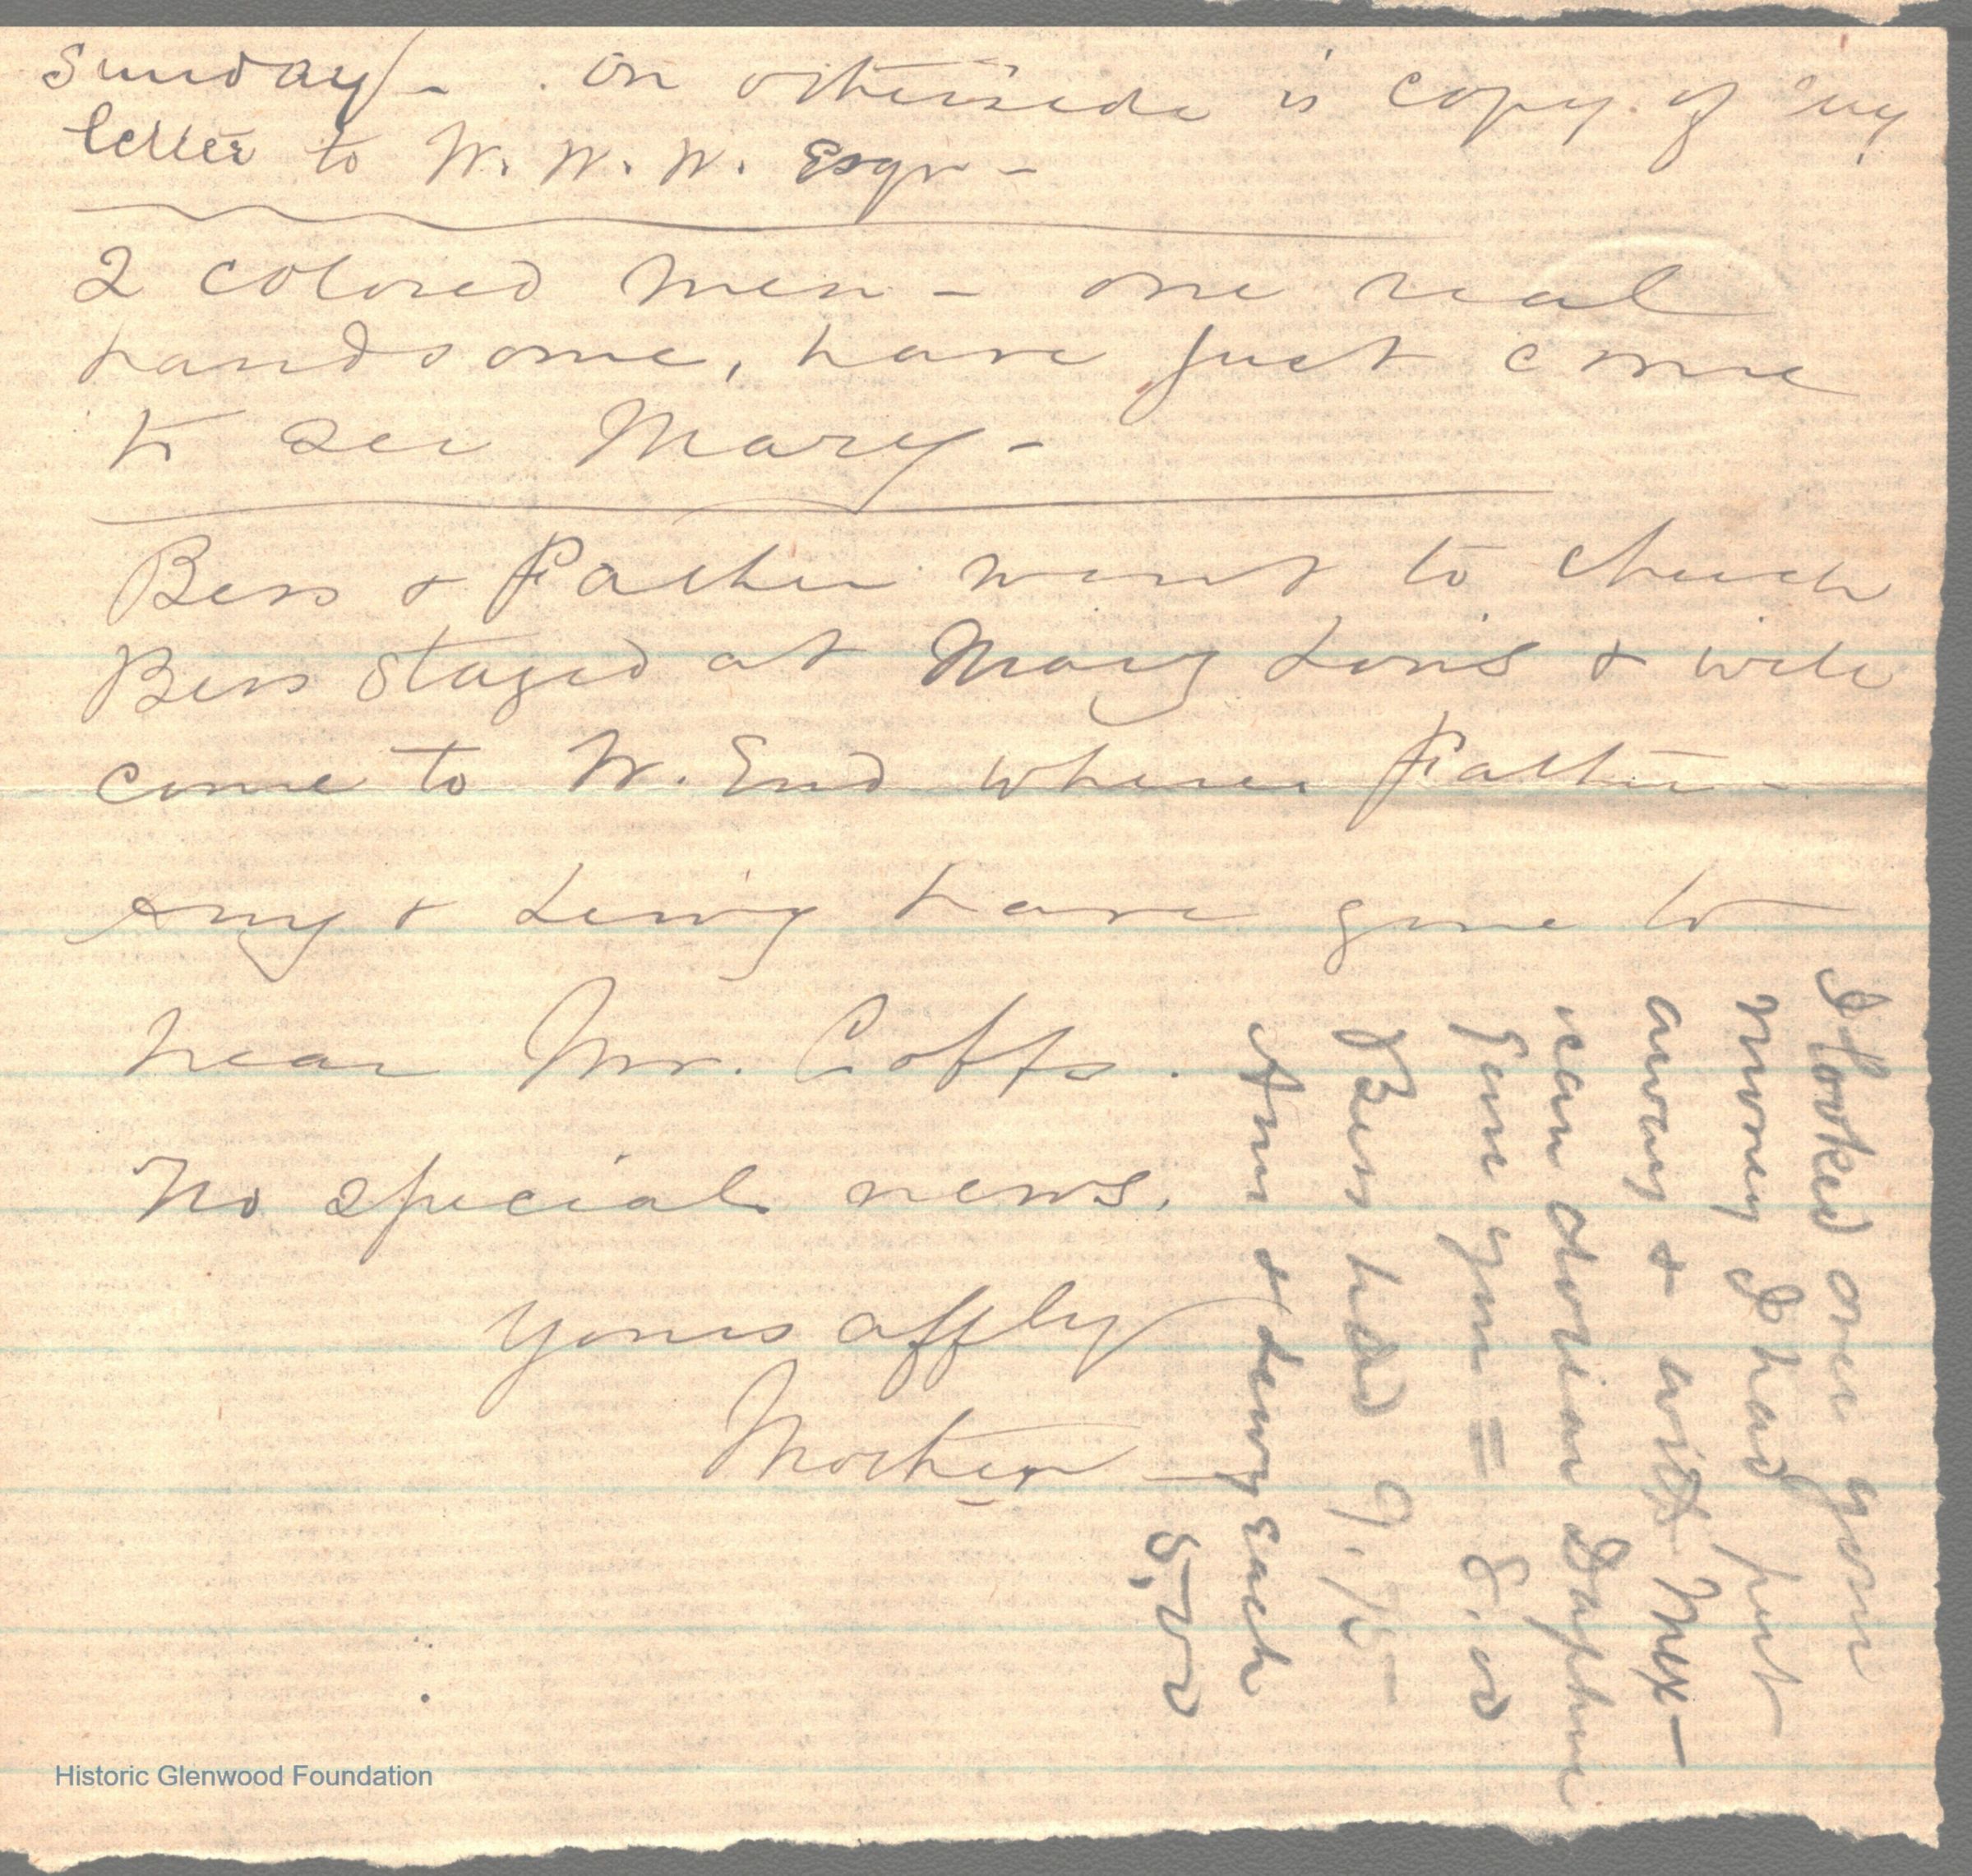 Sunday - On otherside is copy of my
letter to W. W. W. Esqr -
2 colored men - one real
handsome, have just come
to see Mary -
Bess & Father went to church
Bess stayed at Mary Lou's & will
come to W. End where Father -
Amy & Lewy have gone to
hear Mr. Cobbs.
No special news.
Yours affly
Mother
I looked over your
money I had put
away & with Mex-
ican dorian Daphne
gave you = 8.00
Bess had 9.75 -
Amy & Lewy each
5,00
Historic Glenwood Foundation